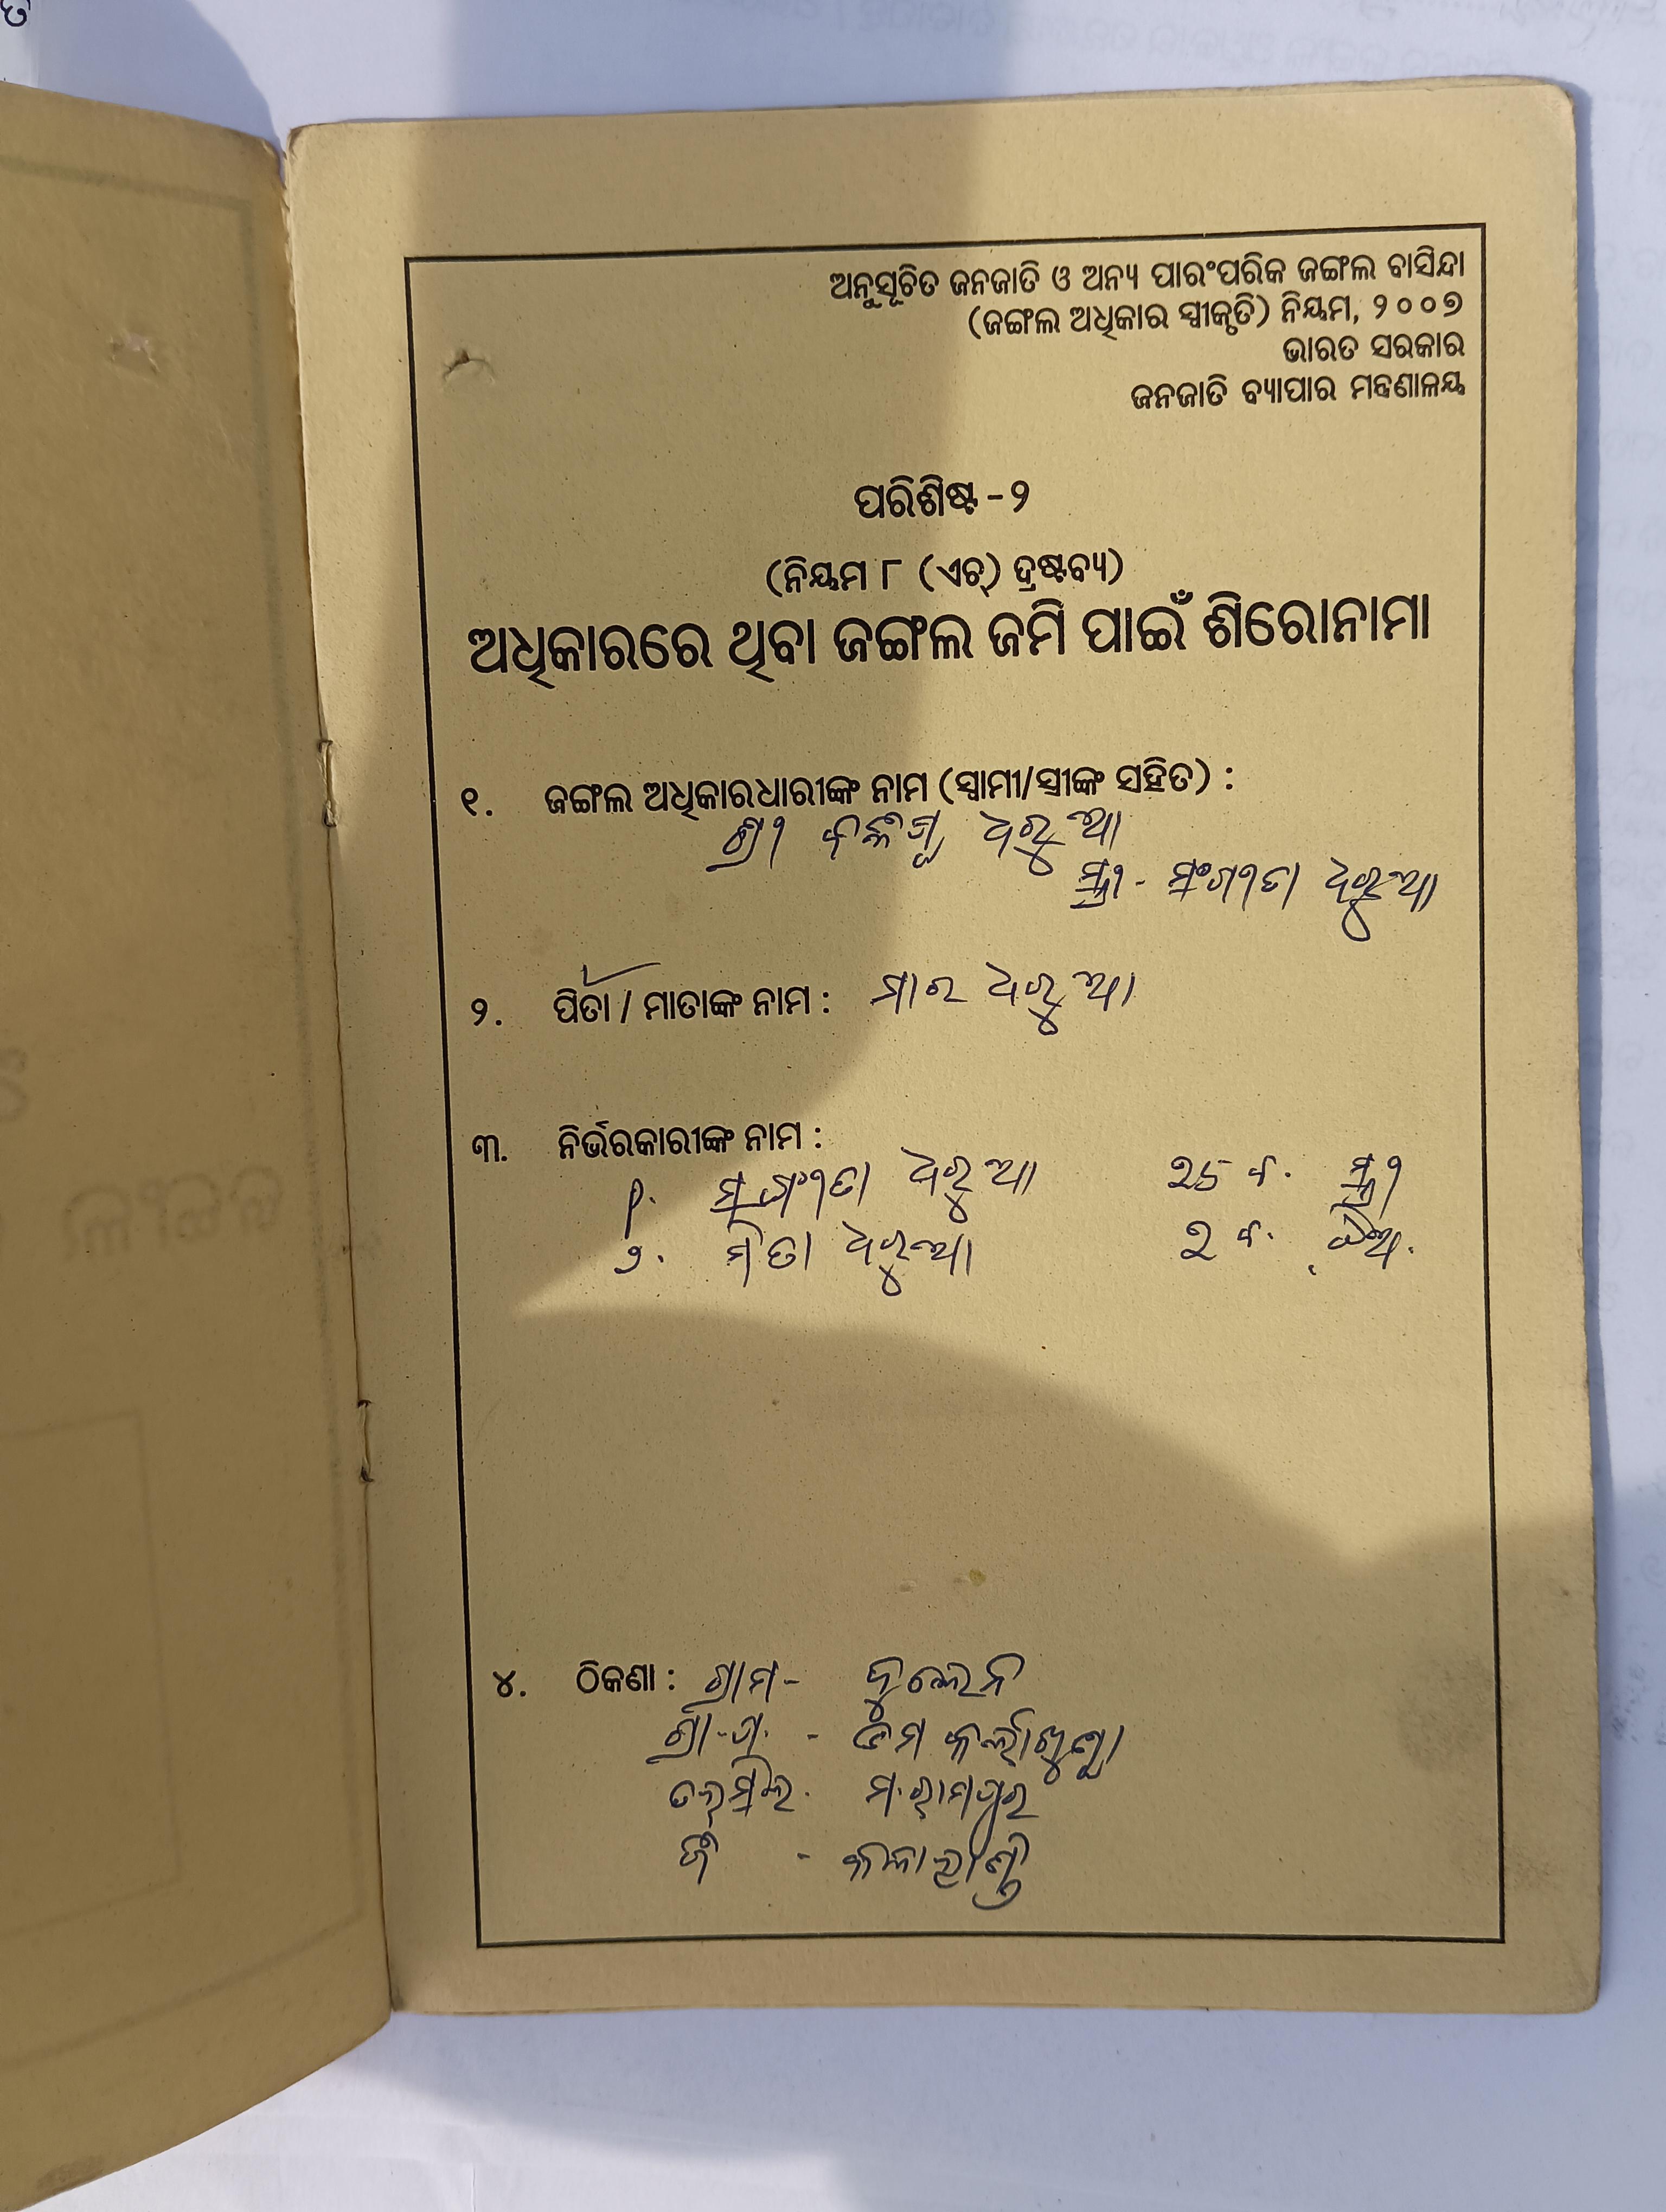 ଅନୁସୂଚିତ ଜନଜାତି ଓ ଅନ୍ୟ ପାରଂପରିକ ଜଙ୍ଗଲ ବାସିନ୍ଦା
(ଜଙ୍ଗଲ ଅଧିକାର ସ୍ୱୀକୃତି) ନିୟମ, ୨୦୦୭
ଭାରତ ସରକାର
ଜନଜାତି ବ୍ୟାପାର ମନ୍ତ୍ରଣାଳୟ
ପରିଶିଷ୍ଟ - ୨
(ନିୟମ ୮ (ଏଚ୍) ଦ୍ରଷ୍ଟବ୍ୟ)
ଅଧିକାରରେ ଥିବା ଜଙ୍ଗଲ ଜମି ପାଇଁ ଶିରୋନାମା
୧. ଜଙ୍ଗଲ ଅଧିକାରଧାରୀଙ୍କ ନାମ (ସ୍ୱାମୀ/ସ୍ତ୍ରୀଙ୍କ ସହିତ) :
ଶ୍ରୀ ଧରୁଆ
ସ୍ତ୍ରୀ - ସଂଗୀତା ଧରୁଆ
୨. ପିତା / ମାତାଙ୍କ ନାମ : ଧରୁଆ
୩. ନିର୍ଭରକାରୀଙ୍କ ନାମ :
୧. ସଂଗୀତା ଧରୁଆ ୨୫ ବ. ସ୍ତ୍ରୀ
୨. ମିତା ଧରୁଆ ୨ ବ. ଝିଅ.
୪. ଠିକଣା : ଗ୍ରାମ -
ଗ୍ରା.ପ. -
ତହସିଲ. ମ.ରାମପୁର
ଜି - କଳାହାଣ୍ଡି